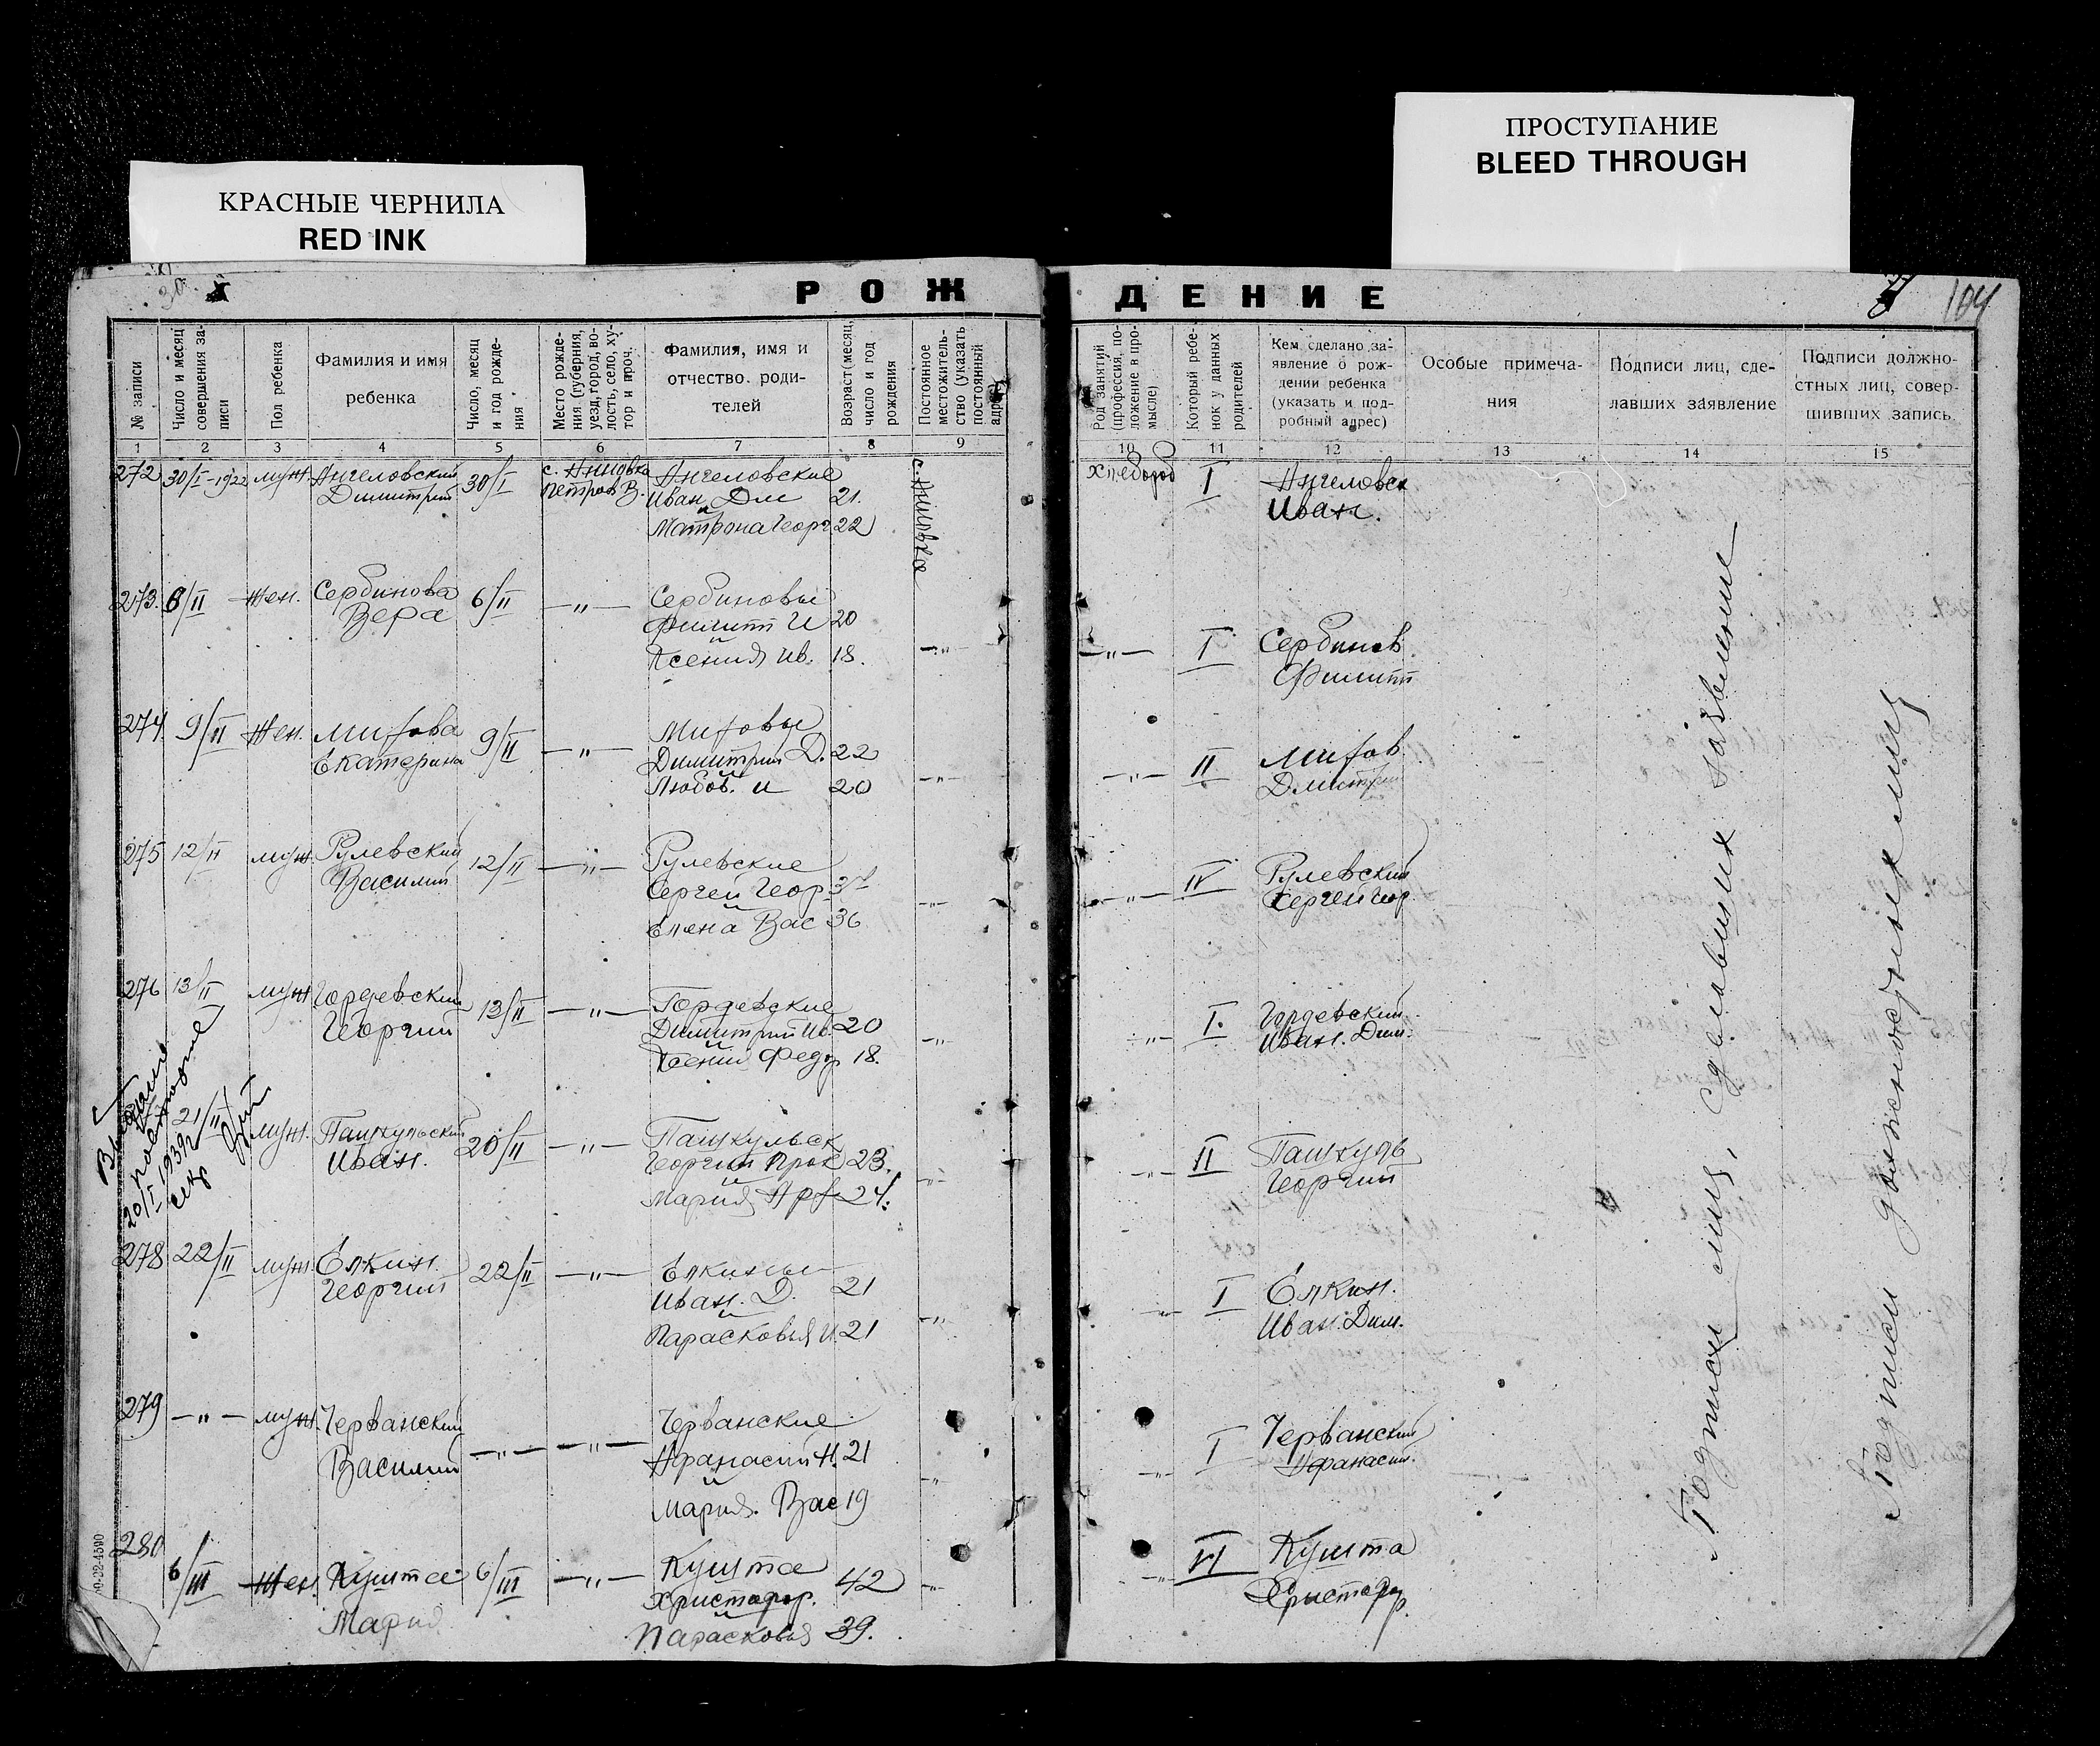 КРАСНЫЕ ЧЕРНИЛА
RED INK
ПРОСТУПАНИЕ
BLEED THROUGH
РОЖДЕНИЕ
104
№ записи
Число и месяц совершения записи
Пол ребенка
Фамилия и имя ребенка
Число, месяц и год рождения
Место рождения (губерния, уезд, город, волость, село, хутор и проч.
Фамилия, имя и отчество. родителей
Возраст (месяц, число и год рождения
Постоянное местожительство (указать постоянный адрес)
Род занятий (профессия, положение в промысле)
Который ребенок у данных родителей
Кем сделано заявление о рождении ребенка (указать и подробный адрес)
Особые примечания
Подписи лиц, сделавших заявление
Подписи должностных лиц, совершивших запись.
1 2 3 4 5 6 7 8 9 10 11 12 13 14 15
272 30/I-1922 муж. Ангеловский Димитрий 30/I с. Анновка Петров В. Ангеловские Иван Дм 21. и Матрона Георг 22 с. Анновка хлебороб I Ангеловск Иван.
273. 6/II Жен. Сербинова Вера 6/II —„— Сербиновы Филипп И 20 и Ксения Ив. 18. —„— —„— I Сербинов Филипп
274. 9/II Жен. Митова Екатерина 9/II —„— Митовы Димитрий Д. 22 и Любов. И 20 —„— —„— II Митов Дмитрий
275 12/II муж. Рулевский Василий 12/II —„— Рулевские Сергей Геор и Елена Вас 36 —„— —„— IV Рулевский Сергей Геор.
276 13/II муж Гордевский Георгий 13/II —„— Гордевские Димитрий Ив. 20 и Ксения Федор 18. —„— —„— I. Гордевский Иван. Дим.
20/I 1939г
21/II муж. Пашкульский Иван. 20/II —„— Пашкульск Георгий Прок 23. и Мария 24. —„— —„— II Пашкуль Георгий
278 22/II муж. Елкин. Георгий 22/II —„— Елкины Иван. Д. 21 и Парасковья И. 21 —„— —„— I Елкин. Иван. Дим.
279 —„— муж. Черванский Василий —„— —„— Черванские Афанасий Н. 21 и Мария. Вас 19 —„— —„— I Черванский Афанасий.
280 6/III Жен Кушта Мария 6/III —„— Кушта Христофор. 42 и Парасковья 39. —„— —„— VI Кушта Христофор.
Подписи лиц, сделавших заявление
Подписи должностных лиц